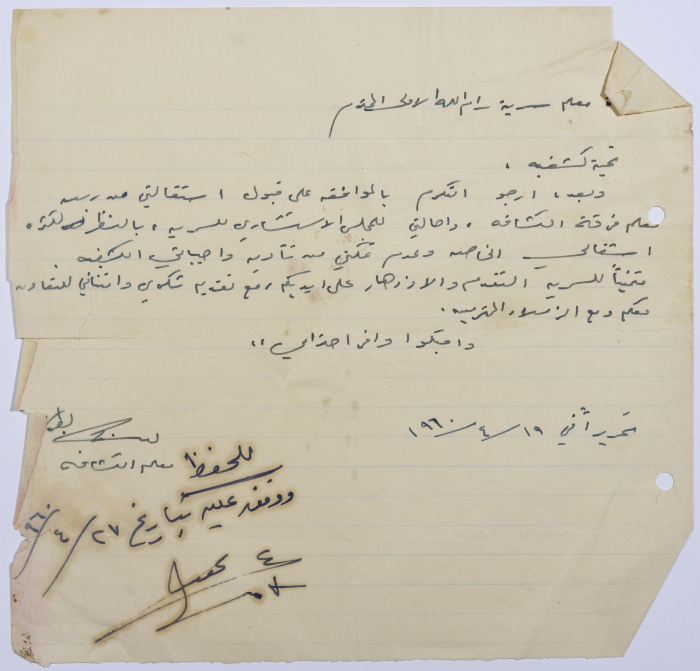 معلم سرية رام الله الاولى المحترم
تحية كشفيه ،
وبعد، ارجو التكرم بالموافقه على قبول استقالتي من رتبة
معلم فرقة الكشافه . واحالتي للمجلس الاستشاري للسريه ، بالنظر لكثرة
اشغالي الخاصه وعدم تمكني من تأديه واجباتي الكشفيه
متمنياً للسريه التقدم والازدهار على ايديكم مع تقديم شكري وامتناني للتعاون
معكم ومع الزملاء المحترمين .
واقبلوا وافر احترامي ،،
تحريراً في ١٩/٤/١٩٦٠
معلم الكشافه
للحفظ
ووفق عليه بتاريخ ٢٧/٤/٩٦٠